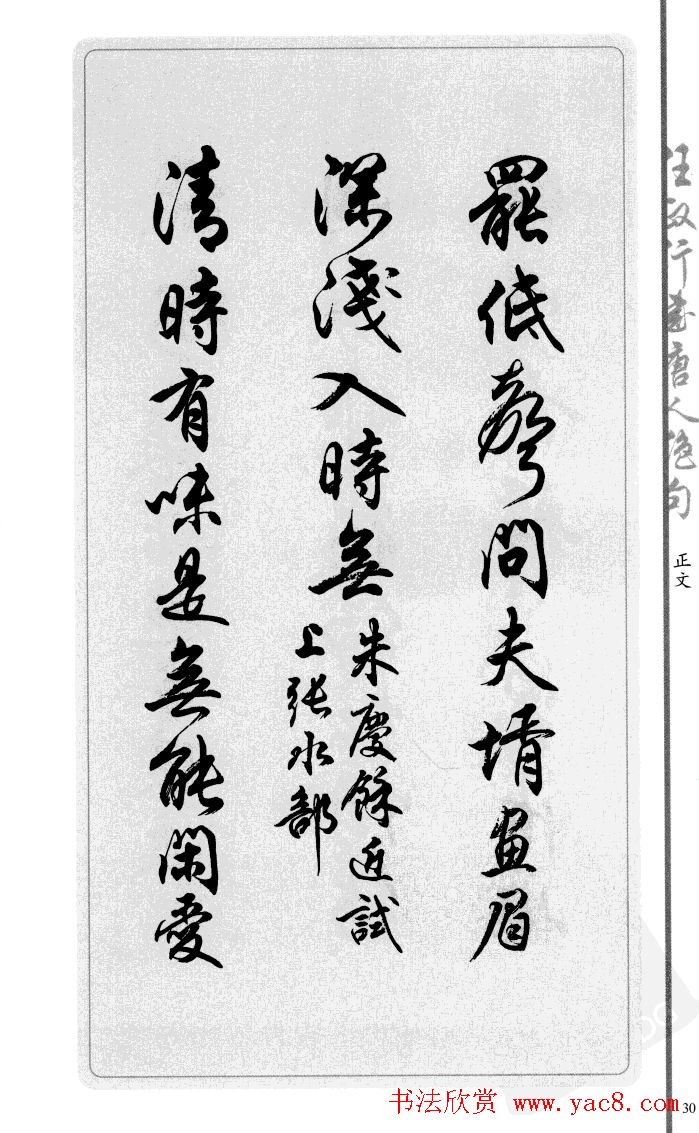 罷低聲問夫壻畫眉
深淺入時無
朱慶餘近試
上张水部
清時有味是無能閑愛
任政行書唐人絶句
正文
书法欣赏 www.yac8.com
30